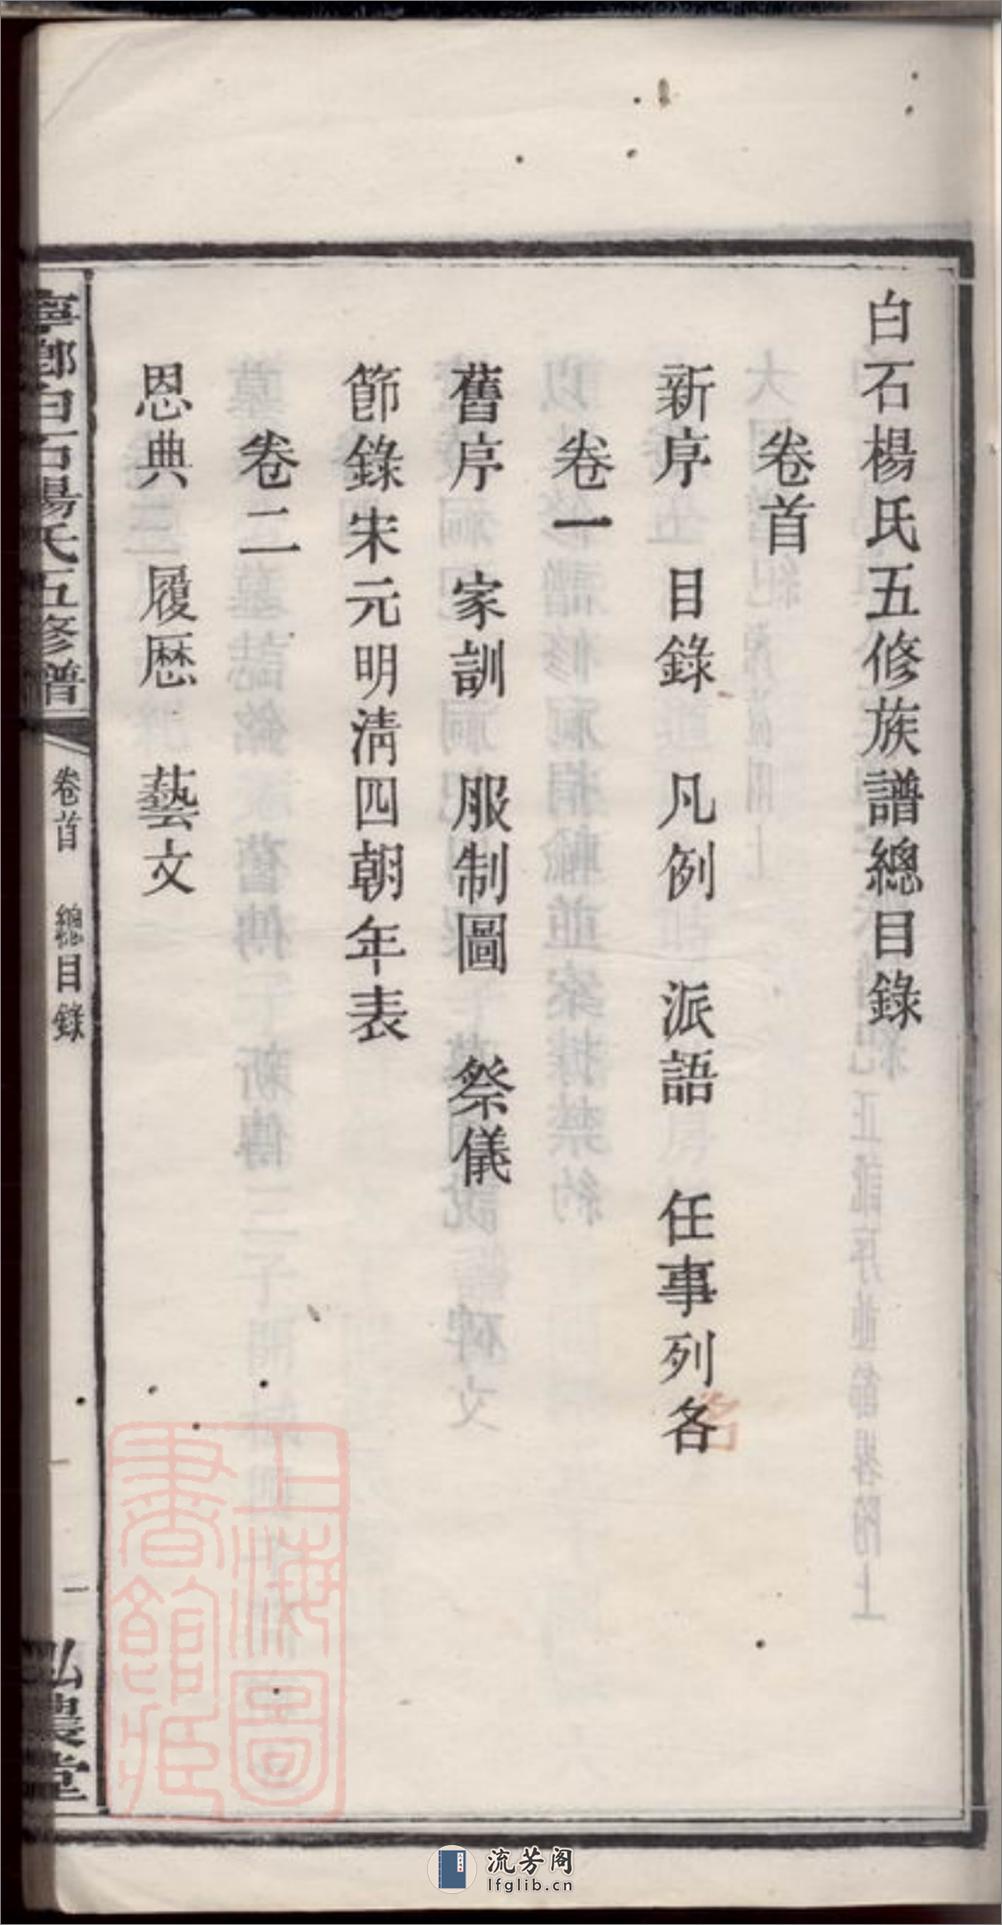 白石楊氏五修族譜總目錄
卷首
新序 目錄 凡例 派語 任事列各
名
卷一
舊序 家訓 服制圖 祭儀
節錄宋元明清四朝年表
卷二
恩典 履歷 藝文
寧鄉白石楊氏五修譜
卷首 總目錄
一
弘農堂
上海圖書館藏
流芳阁
lfglib.cn